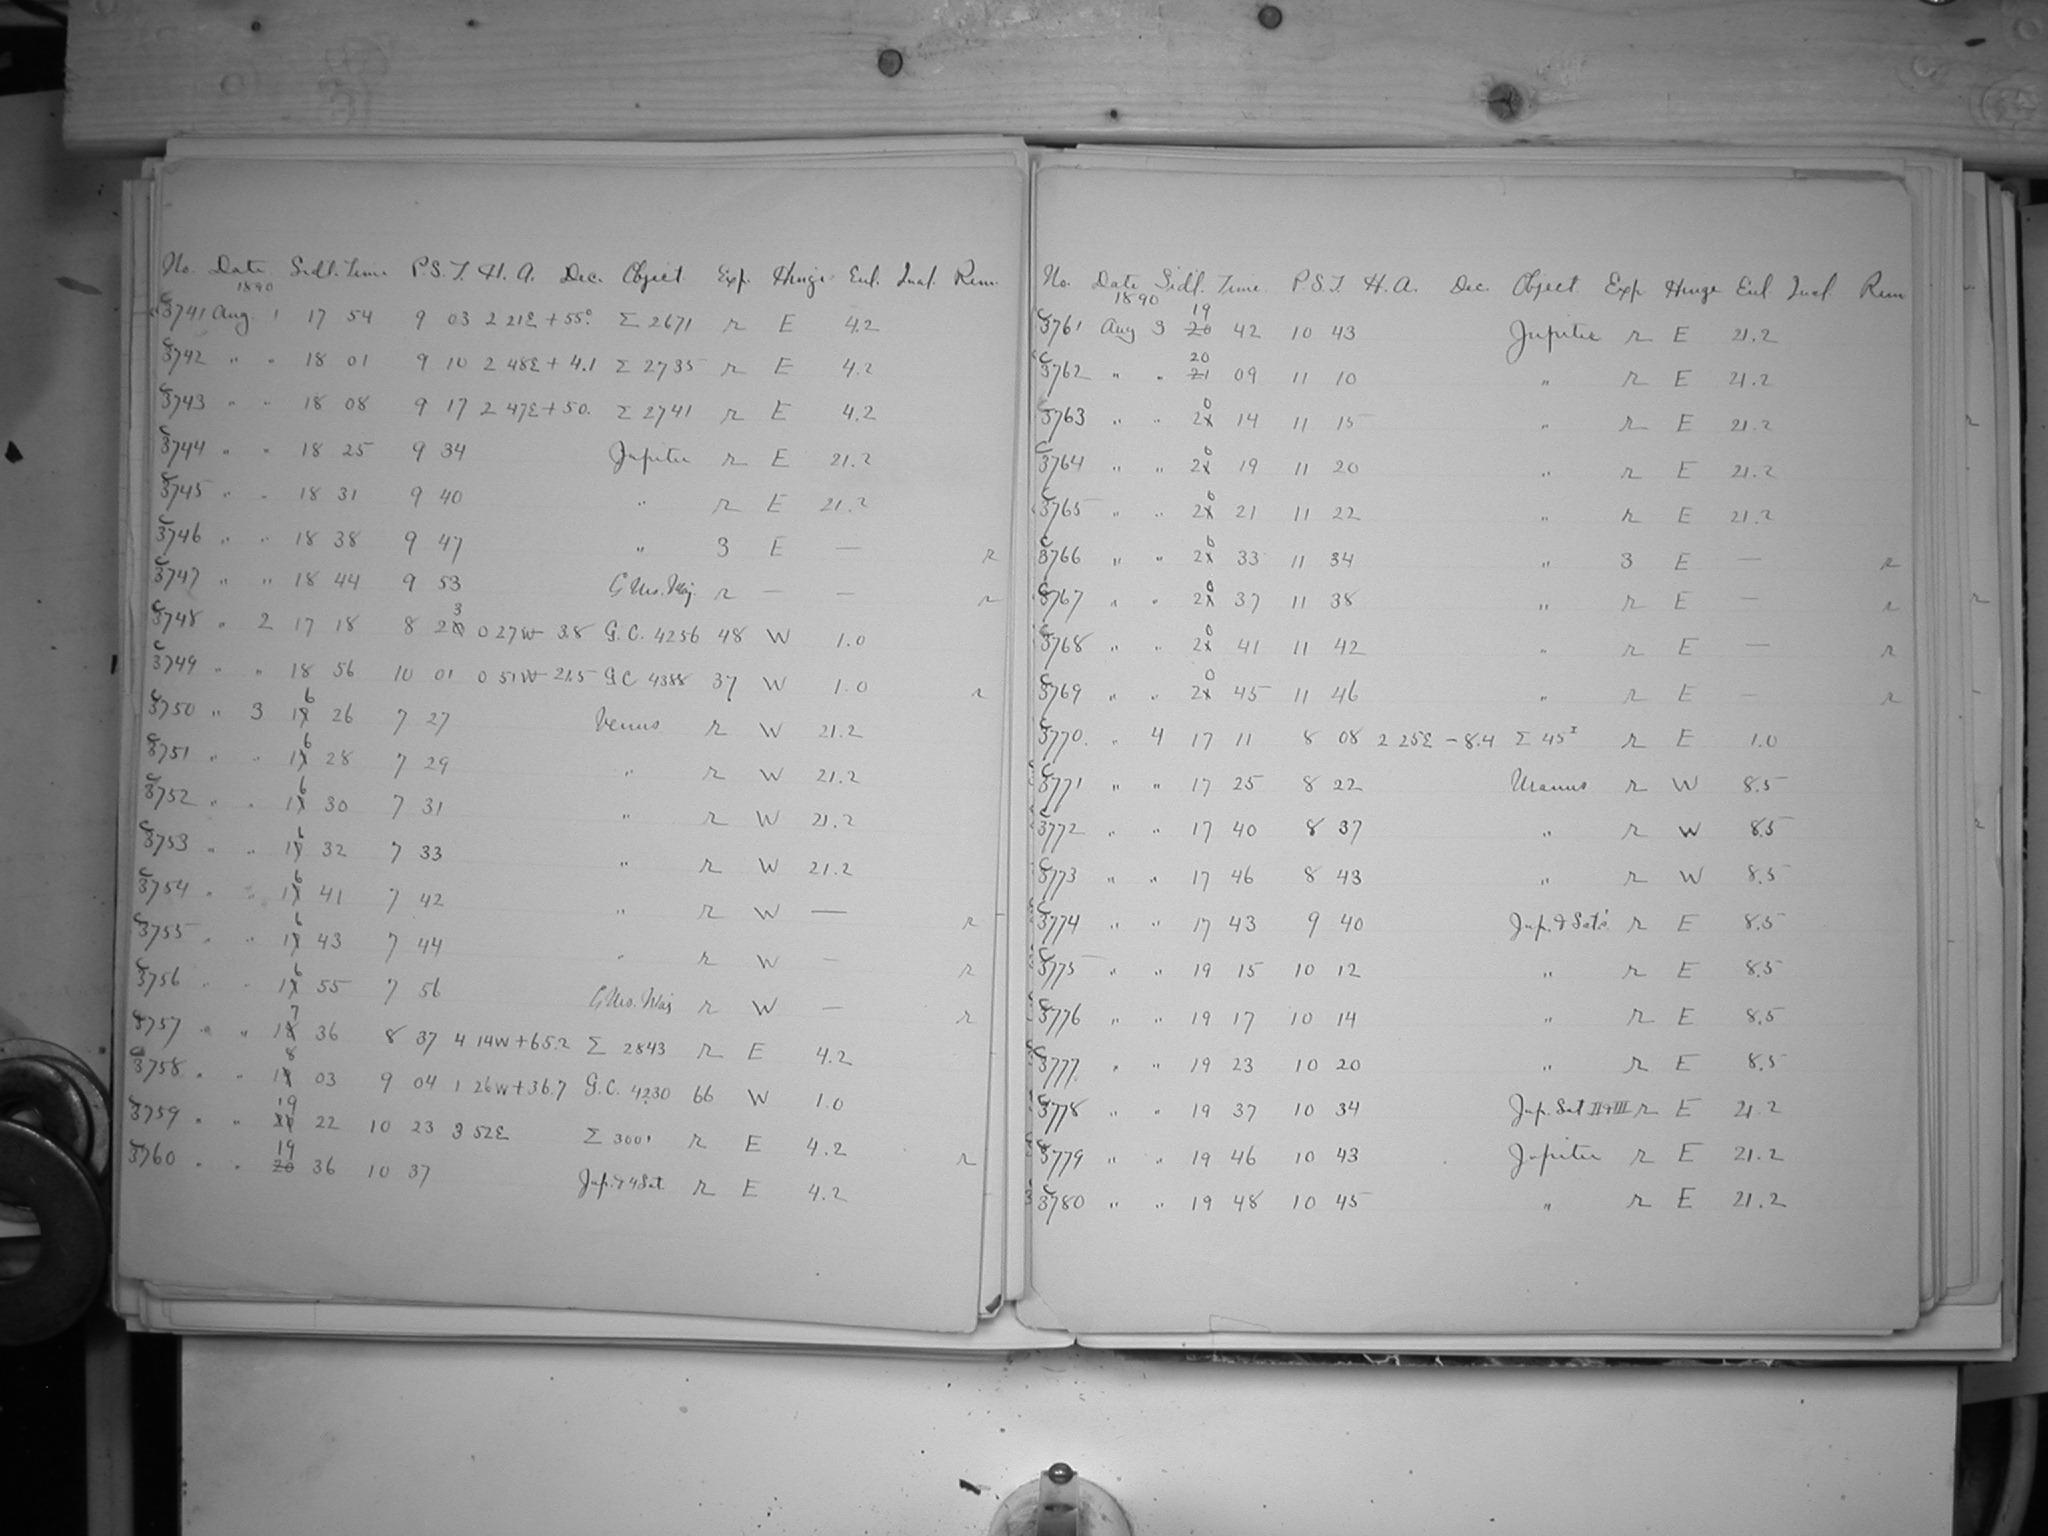 No. Date Sidl. Time P.S.T. H. A. Dec. Object Exp. Hinge Enl. Qual. Rem.
1890
3741 Aug. 1 17 54 9 03 2 21E +55° Σ 2671 r E 4.2
3742 " " 18 01 9 10 2 48E + 4.1 Σ 2735 r E 4.2
3743 " " 18 08 9 17 2 47E +50. Σ 2741 r E 4.2
3744 " " 18 25 9 34 Jupiter r E 21.2
3745 " " 18 31 9 40 " r E 21.2
3746 " " 18 38 9 47 " 3 E — r
3747 " " 18 44 9 53 ζ Urs. Maj. r — — r
3748 " 2 17 18 8 23 0 27W - 3.8 G.C. 4256 48 W 1.0
3749 " " 18 56 10 01 0 51W - 21.5 G.C. 4388 37 W 1.0 r
3750 " 3 16 26 7 27 Venus r W 21.2
3751 " " 16 28 7 29 " r W 21.2
3752 " " 16 30 7 31 " r W 21.2
3753 " " 16 32 7 33 " r W 21.2
3754 " " 16 41 7 42 " r W — r
3755 " " 16 43 7 44 " r W — r
3756 " " 16 55 7 56 ζ Urs. Maj r W — r
3757 " " 17 36 8 37 4 14W +65.2 Σ 2843 r E 4.2
3758 " " 18 03 9 04 1 26W +36.7 G.C. 4230 66 W 1.0
3759 " " 19 22 10 23 3 52E Σ 3001 r E 4.2 r
3760 " " 19 36 10 37 Jup. & 4 Sat. r E 4.2
No. Date Sidl. Time P.S.T. H.A. Dec. Object Exp Hinge Enl. Qual. Rem
1890
3761 Aug 3 19 42 10 43 Jupiter r E 21.2
3762 " " 20 09 11 10 " r E 21.2
3763 " " 20 14 11 15 " r E 21.2
3764 " " 20 19 11 20 " r E 21.2
3765 " " 20 21 11 22 " r E 21.2
3766 " " 20 33 11 34 " 3 E — r
3767 " " 20 37 11 38 " r E — r
3768 " " 20 41 11 42 " r E — r
3769 " " 20 45 11 46 " r E — r
3770. " 4 17 11 8 08 2 25E - 8.4 Σ 45 I r E 1.0
3771 " " 17 25 8 22 Uranus r W 8.5
3772 " " 17 40 8 37 " r W 8.5
3773 " " 17 46 8 43 " r W 8.5
3774 " " 17 43 9 40 Jup. & Sat's. r E 8.5
3775 " " 19 15 10 12 " r E 8.5
3776 " " 19 17 10 14 " r E 8.5
3777 " " 19 23 10 20 " r E 8.5
3778 " " 19 37 10 34 Jup. Sat II & III r E 21.2
3779 " " 19 46 10 43 Jupiter r E 21.2
3780 " " 19 48 10 45 " r E 21.2